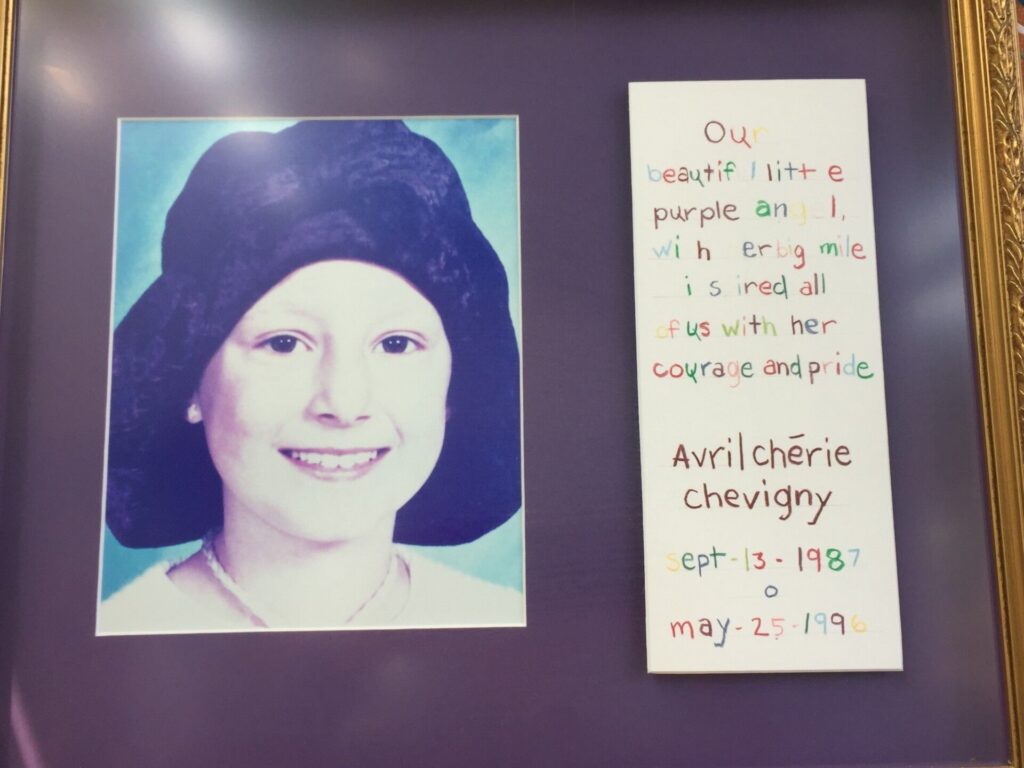 Our
beautiful little
purple angel,
with her big smile
inspired all
of us with her
courage and pride
Avril chérie
chevigny
sept-13-1987
o
may-25-1996